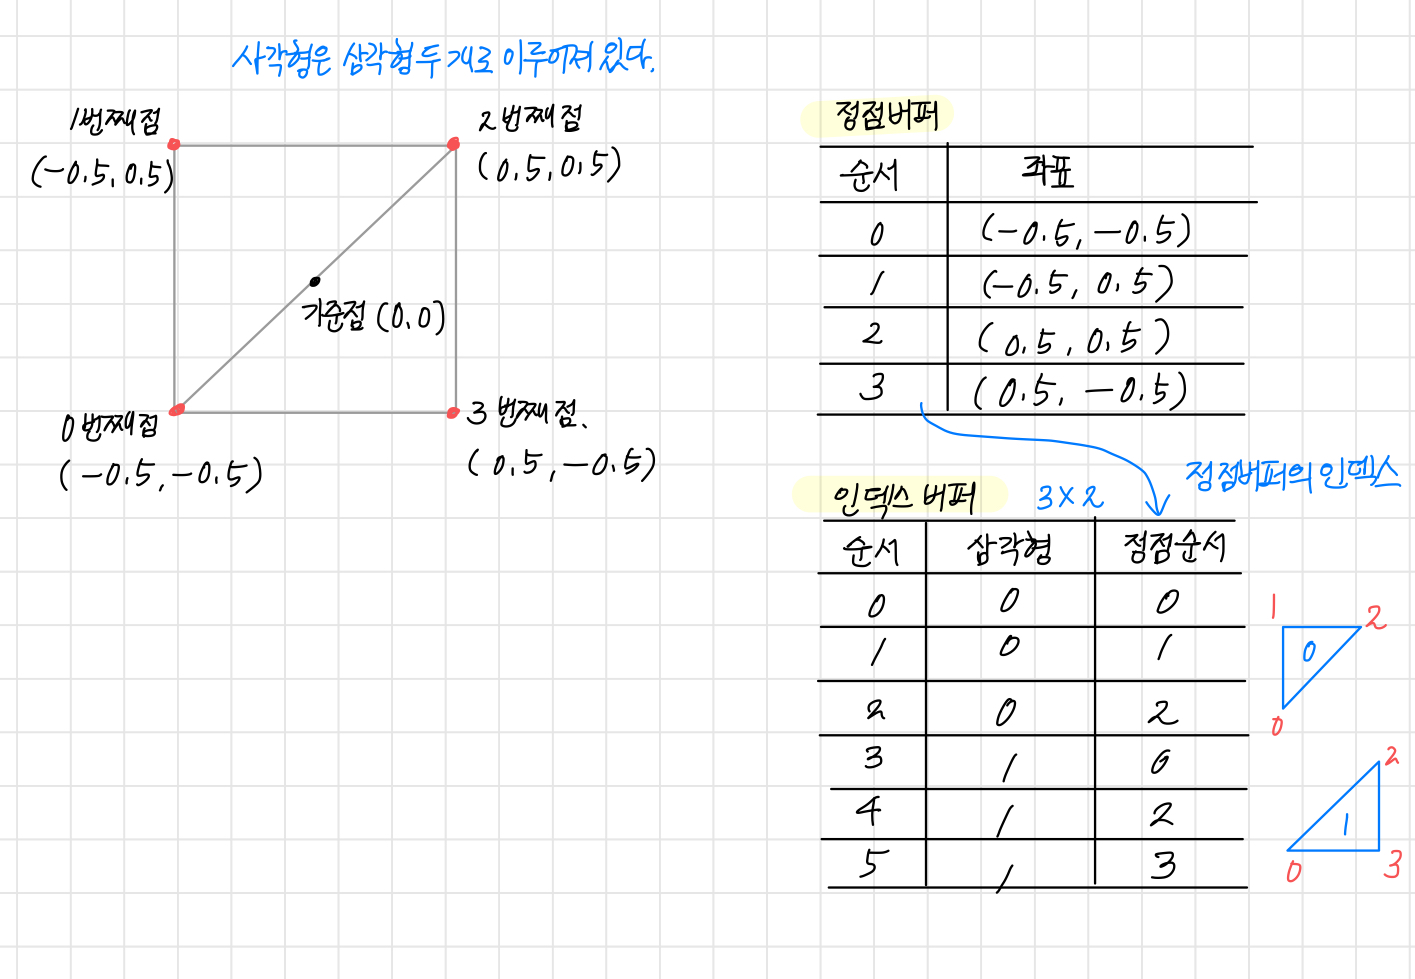 사각형은 삼각형 두 개로 이루어져 있다.
1번째점
(-0.5, 0.5)
2번째점
(0.5, 0.5)
기준점 (0,0)
0번째점
(-0.5, -0.5)
3번째점.
(0.5, -0.5)
정점버퍼
순서 좌표
0 (-0.5, -0.5)
1 (-0.5, 0.5)
2 (0.5, 0.5)
3 (0.5, -0.5)
정점버퍼의 인덱스
인덱스 버퍼 3×2
순서 삼각형 정점순서
0 0 0
1 0 1
2 0 2
3 1 0
4 1 2
5 1 3
1 2
0
0
2
1
0 3